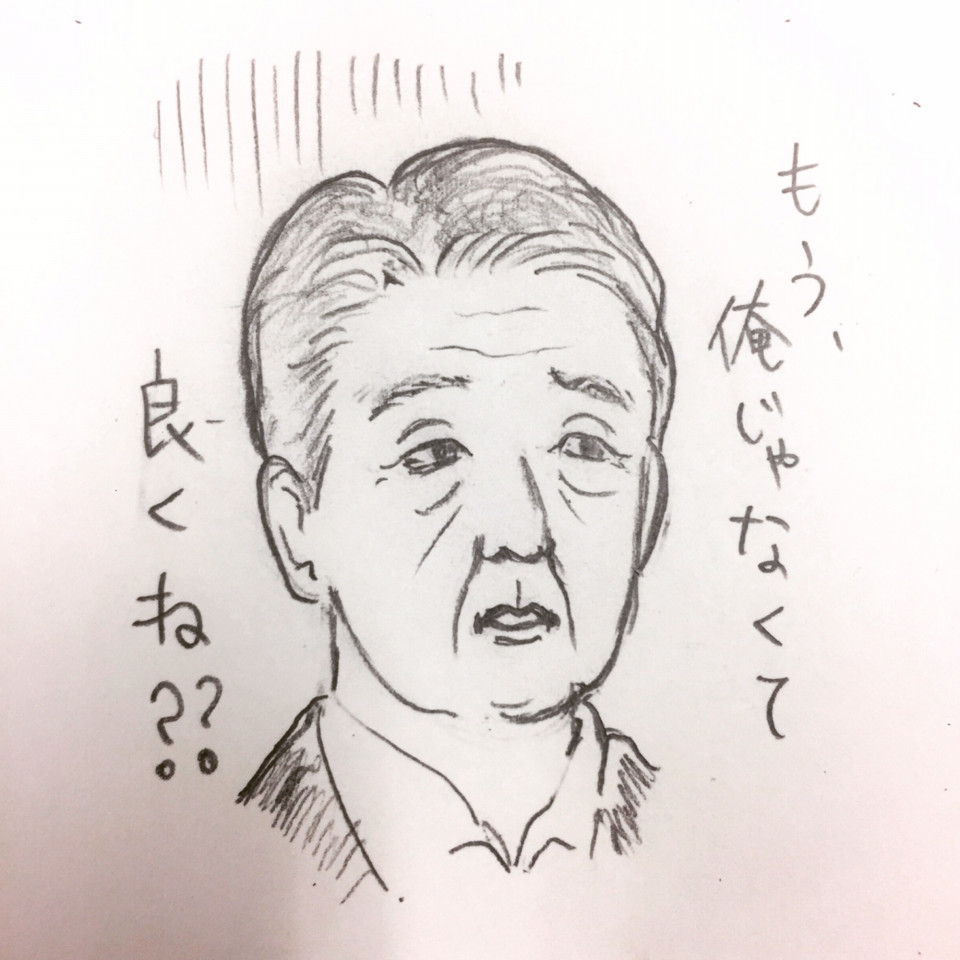 もう、
俺じゃなくて
良くね??